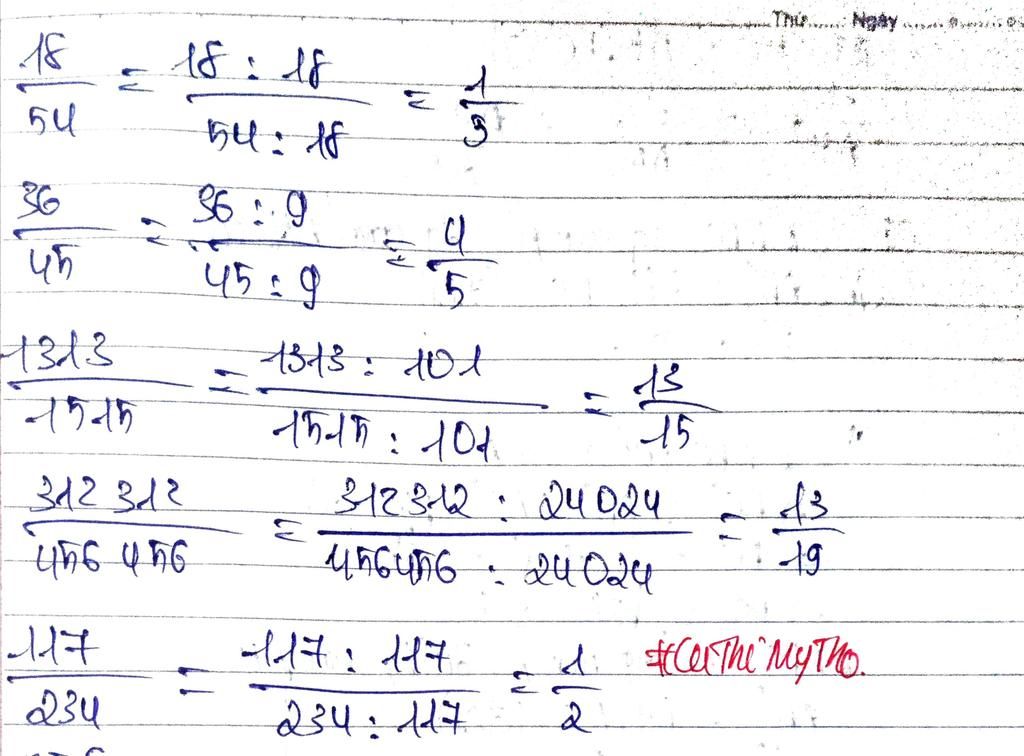 Thứ...... Ngày
18/54 = 18 : 18/54 : 18 = 1/3
36/45 = 36 : 9/45 : 9 = 4/5
1313/1515 = 1313 : 101/1515 : 101 = 13/15
312 312/456 456 = 312 312 : 24024/456456 : 24024 = 13/19
117/234 = 117 : 117/234 : 117 = 1/2